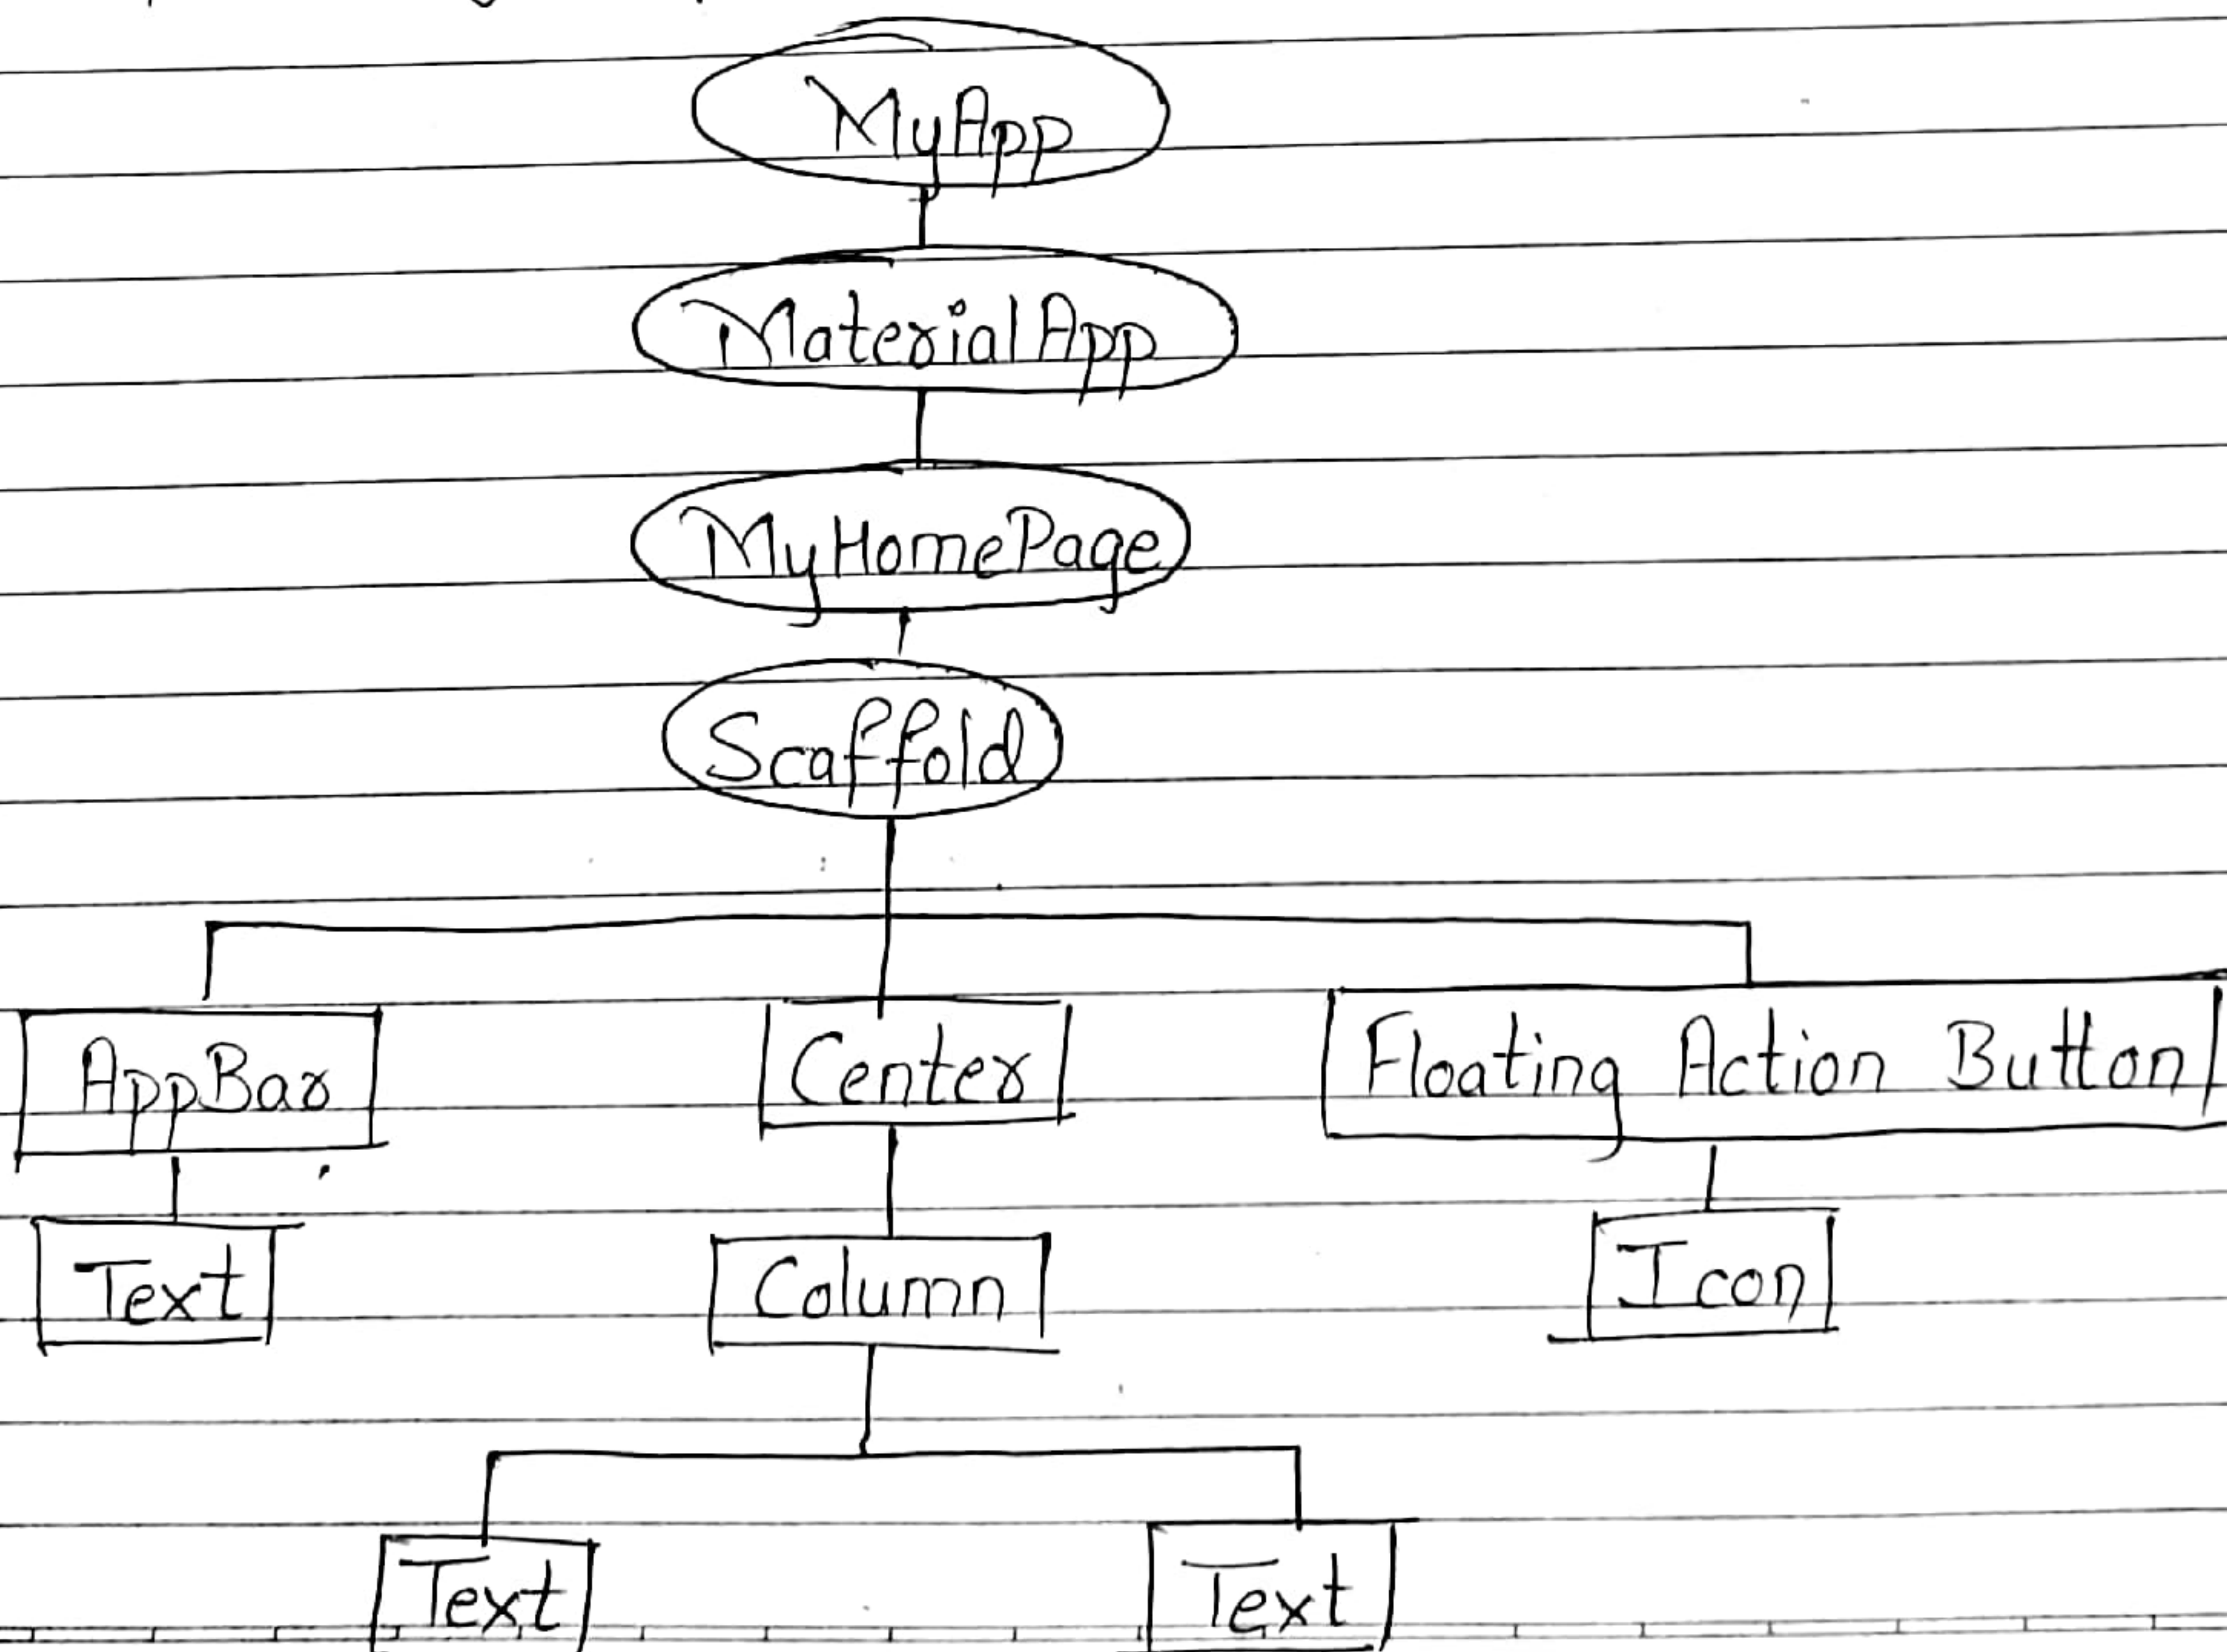 MyApp
MaterialApp
MyHomePage
Scaffold
AppBar Center Floating Action Button
Text Column Icon
Text Text